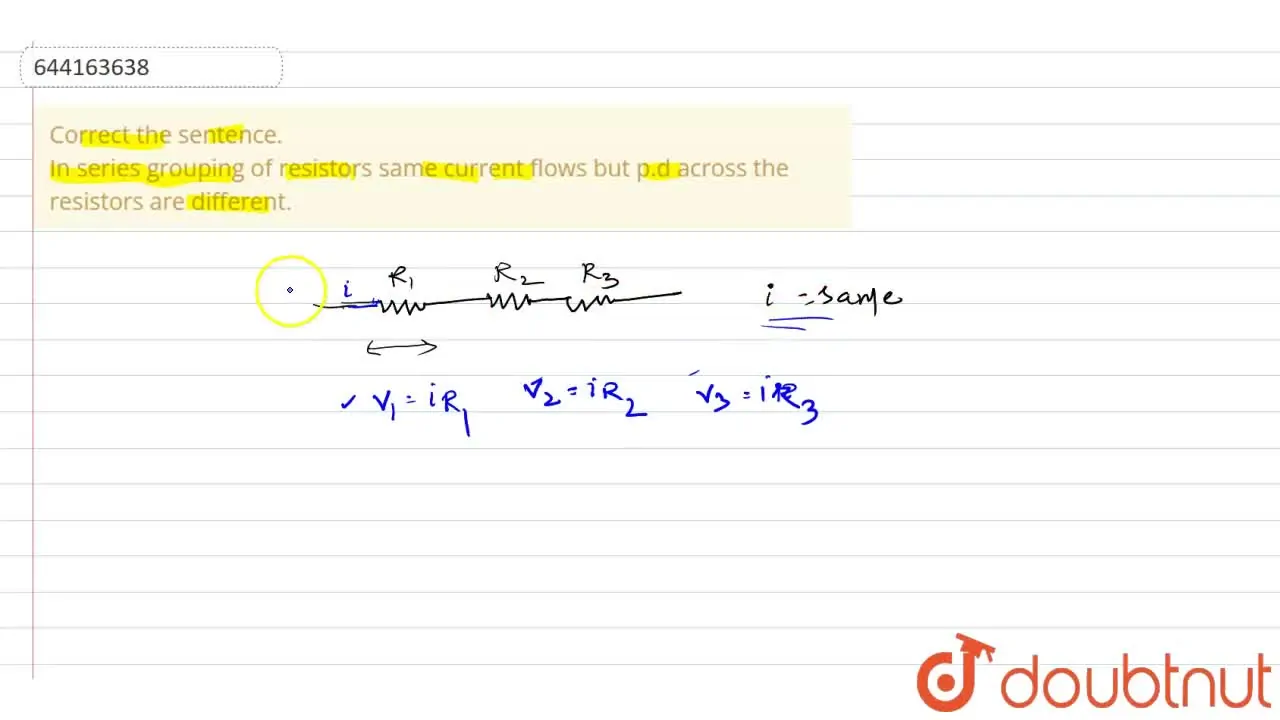 644163638
Correct the sentence.
In series grouping of resistors same current flows but p.d across the
resistors are different.
i R1 R2 R3 i = same
V1 = iR1 V2 = iR2 V3 = iR3
doubtnut